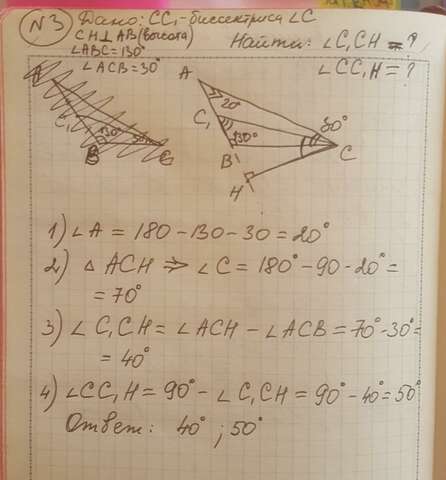 №3 Дано: CC₁ - биссектриса ∠C
CH⊥AB (высота)
∠ABC = 130°
∠ACB = 30°
Найти: ∠C₁CH = ?
∠CC₁H = ?
A
C₁
130°
A
20°
C₁
130°
B
H
30°
C
1) ∠A = 180 - 130 - 30 = 20°
2) △ ACH ⇒ ∠C = 180° - 90 - 20° =
= 70°
3) ∠C₁CH = ∠ACH - ∠ACB = 70° - 30° =
= 40°
4) ∠CC₁H = 90° - ∠C₁CH = 90° - 40° = 50°
Ответ: 40° ; 50°